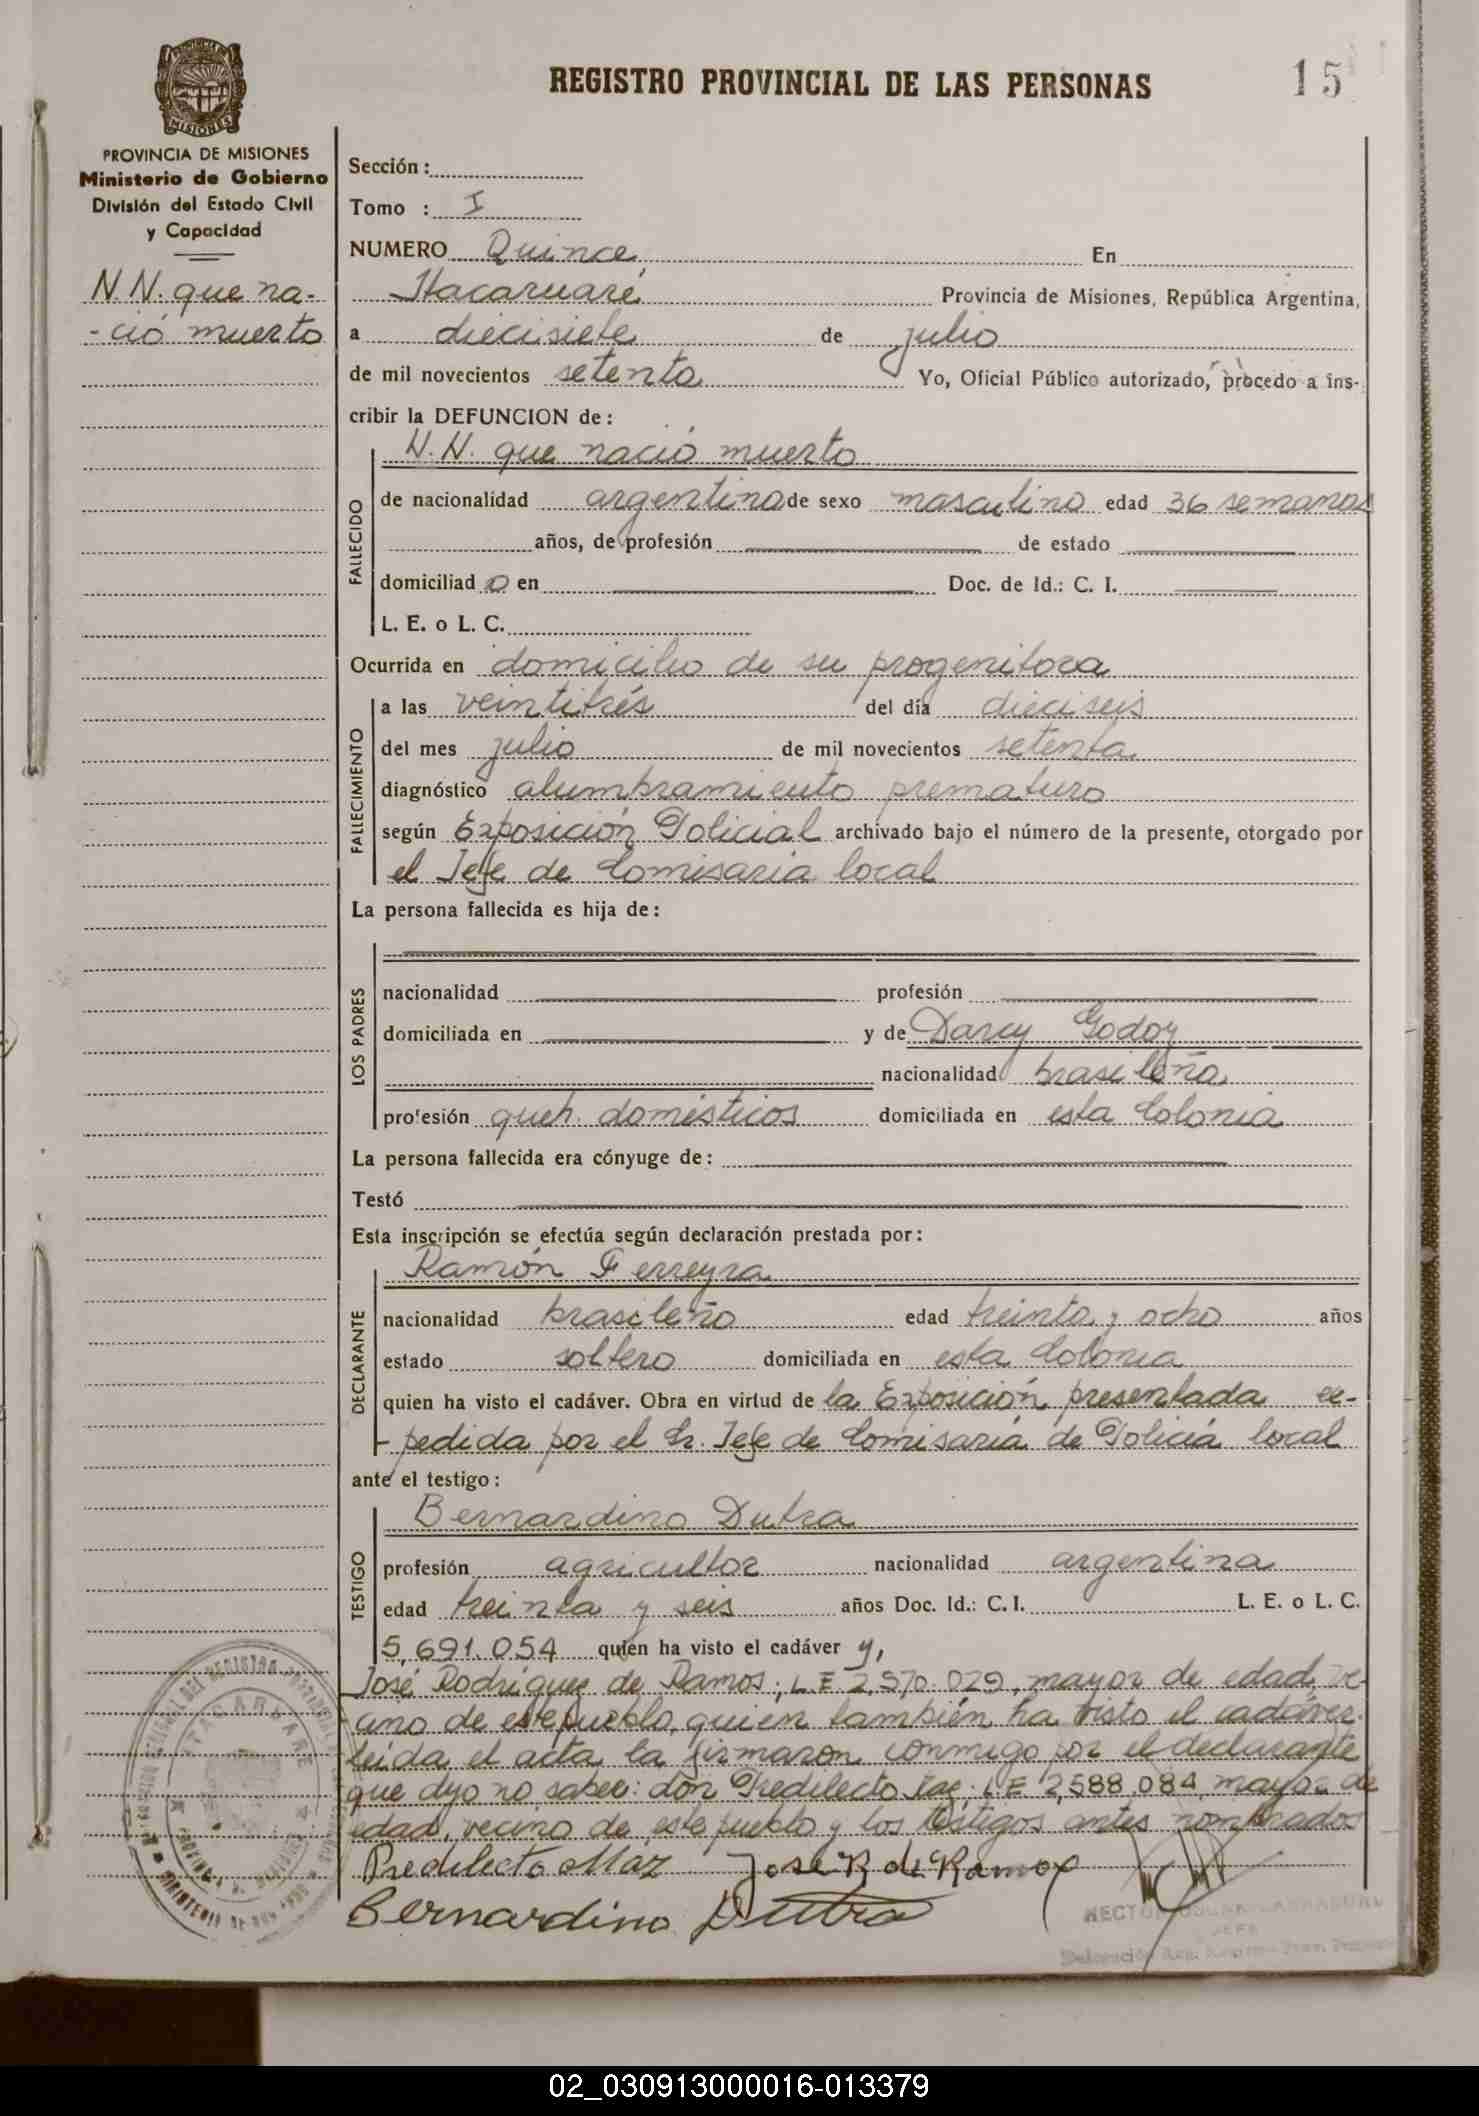 REGISTRO PROVINCIAL DE LAS PERSONAS
15
PROVINCIA DE MISIONES
Ministerio de Gobierno
División del Estado Civil
y Capacidad
N.N. que na-
-ció muerto
Sección:
Tomo : I
NUMERO Quince En
Itacaruaré Provincia de Misiones, República Argentina,
a diecisiete de julio
de mil novecientos setenta Yo, Oficial Público autorizado, procedo a ins-
cribir la DEFUNCION de:
N.N. que nació muerto
FALLECIDO
de nacionalidad argentina de sexo masculino edad 36 semanas
años, de profesión de estado
domiciliad o en Doc. de Id.: C. I.
L. E. o L. C.
Ocurrida en domicilio de su progenitora
FALLECIMIENTO
a las veintitrés del día dieciseis
del mes julio de mil novecientos setenta
diagnóstico alumbramiento prematuro
según Exposición Policial archivado bajo el número de la presente, otorgado por
el Jefe de Comisaria local
La persona fallecida es hija de:
LOS PADRES
nacionalidad profesión
domiciliada en y de Darcy Godoy
nacionalidad brasileña
profesión queh. domésticos domiciliada en esta Colonia
La persona fallecida era cónyuge de:
Testó
Esta inscripción se efectúa según declaración prestada por:
Ramón Ferreyra
DECLARANTE
nacionalidad brasileño edad treinta y ocho años
estado soltero domiciliada en esta Colonia
quien ha visto el cadáver. Obra en virtud de la Exposición presentada ex-
-pedida por el Sr. Jefe de Comisaria de Policia local
ante el testigo:
Bernardino Dutra
TESTIGO
profesión agricultor nacionalidad argentina
edad treinta y seis años Doc. Id.: C. I. L. E. o L. C.
5,691.054 quien ha visto el cadáver y,
José Rodriguez de Ramos, L.E 2.570.029, mayor de edad, ve-
cino de este pueblo, quien también ha visto el cadáver.
Leída el acta la firmaron conmigo por el declarante
que dijo no saber: don Predilecto L.E 2,588.084, mayor de
edad, vecino de este pueblo y los testigos antes nombrados
Predilecto José R de Ramos
Bernardino Dutra
HECTOR
JEFE
ITACARUARE
02_030913000016-013379